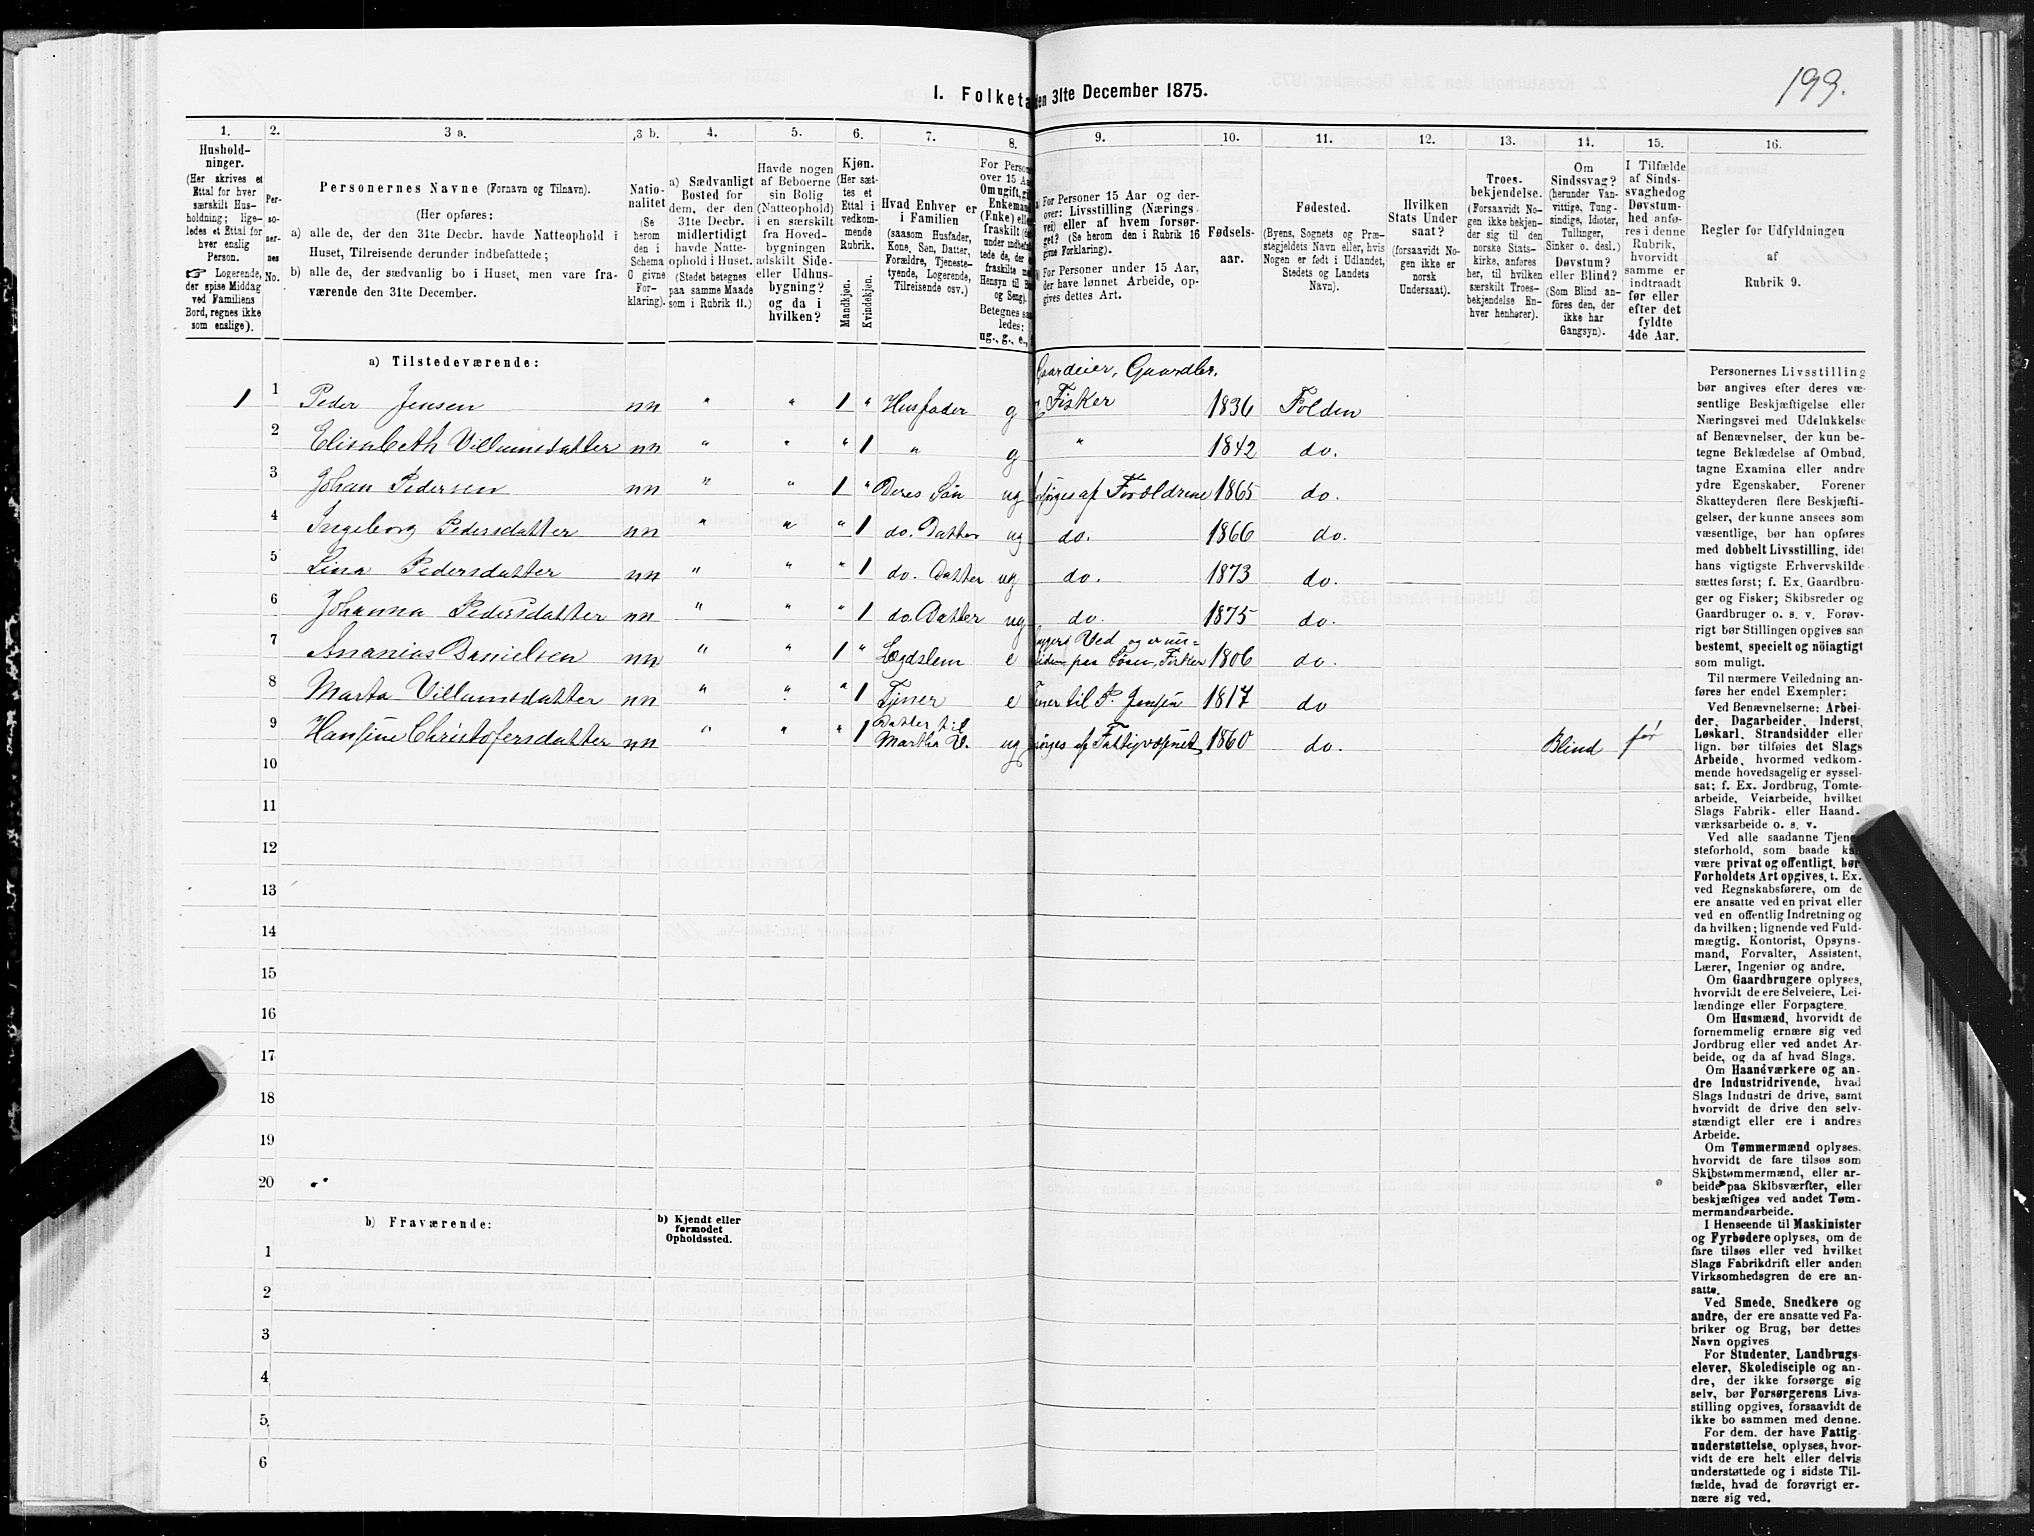 199.
I. Folketa en 31te December 1875.
1. 2. 3 a. 3 b. 4. 5. 6. 7. 8. 9. 10. 11. 12. 13. 14. 15. 16.
Hushold-
ninger.
(Her skrives et
Ettal for hver
særskilt Hus-
holdning; lige-
ledes et Ettal for
hver enslig
Person.
☞ Logerende,
der spise Middag
ved Familiens
Bord, regnes ikke
som enslige).
Per-
so-
ner-
nes
No.
Personernes Navne (Fornavn og Tilnavn).
(Her opføres:
a) alle de, der den 31te Decbr. havde Natteophold i
Huset, Tilreisende derunder indbefattede;
b) alle de, der sædvanlig bo i Huset, men vare fra-
værende den 31te December.
Natio-
nalitet
(Se
herom
den i
Schema
G givne
For-
klaring).
a) Sædvanligt
Bosted for
dem, der den
31te Decbr.
midlertidigt
havde Natte-
ophold i Huset.
(Stedet betegnes
paa samme Maade
som i Rubrik 11.)
Havde nogen
af Beboerne
sin Bolig
(Natteophold)
i en særskilt
fra Hoved-
bygningen
adskilt Side-
eller Udhus-
bygning?
og da i
hvilken?
Kjøn.
(Her sæt-
tes et
Ettal i
vedkom-
mende
Rubrik.
Mandkjøn.
Kvindekjøn.
Hvad Enhver er
i Familien
(saasom Husfader,
Kone, Søn, Datter,
Forældre, Tjeneste-
tyende, Logerende,
Tilreisende osv.)
For Person
over 15 Aa
Om ugift, gif
Enkeman
(Enke) elle
fraskilt (de
under indbefa
tede de, der e
fraskilte me
Hensyn til B
og Seng).
Betegnes saa
ledes:
ug., g., e.,
For Personer 15 Aar og der-
over: Livsstilling (Nærings-
vei) eller af hvem forsør-
get? (Se herom den i Rubrik 16
givne Forklaring).
For Personer under 15 Aar,
der have lønnet Arbeide, op-
gives dettes Art.
Fødsels-
aar.
Fødested.
(Byens, Sognets og Præ-
stegjeldets Navn eller, hvis
Nogen er født i Udlandet,
Stedets og Landets
Navn).
Hvilken
Stats Under
saat?
(forsaavidt No-
gen ikke er
norsk
Undersaat).
Troes-
bekjendelse.
(Forsaavidt No-
gen ikke bekjen-
der sig til den
norske Stats-
kirke, anføres
her, til hvilken
særskilt Troes-
bekjendelse En-
hver henhører).
Om
Sindssvag?
(herunder Van-
vittige, Tung-
sindige, Idioter,
Tullinger,
Sinker o. desl.)
Døvstum?
eller Blind?
(Som Blind an-
føres den, der
ikke har
Gangsyn).
I Tilfælde
af Sinds-
svaghed og
Døvstum-
hed anfø-
res i denne
Rubrik,
hvorvidt
samme er
indtraadt
før eller
efter det
fyldte
4de Aar.
Regler for Udfyldningen
af
Rubrik 9.
a) Tilstedeværende:
Gaardeier, Gaardbr.
1 1 Peder Jensen nn " " 1 " Husfader g Fisker 1836 Folden
2 Elisabeth Villumsdatter nn " " " 1 " g " 1842 do.
3 Johan Pedersen nn " " 1 " Deres Søn ug forsørges af Forældrene 1865 do.
4 Ingeborg Pedersdatter nn " " " 1 do. Datter ug do. 1866 do.
5 Lina Pedersdatter nn " " " 1 do. Datter ug do. 1873 do.
6 Johanna Pedersdatter nn " " " 1 do. Datter ug do. 1875 do.
7 Ananias Danielsen nn " " 1 " Lægdslem e Ved og er un- paa Søen, Fisker 1806 do.
8 Marta Villumsdatter nn " " " 1 Tjener e til P. Jensen 1817 do
9 Hansine Christofersdatter nn " " " 1 Datter til Martha V. ug af Fattigvæsnet 1860 do. Blind før
10
11
12
13
14
15
16
17
18
19
20
b) Fraværende:
b) Kjendt eller
formodet
Opholdssted.
1
2
3
4
5
6
Personernes Livsstilling
bør angives efter deres væ-
sentlige Beskjæftigelse eller
Næringsvei med Udelukkelse
af Benævnelser, der kun be-
tegne Beklædelse af Ombud,
tagne Examina eller andre
ydre Egenskaber. Forener
Skatteyderen flere Beskjæfti-
gelser, der kunne ansees som
væsentlige, bør han opføres
med dobbelt Livsstilling, idet
hans vigtigste Erhvervskilde
sættes først; f. Ex. Gaardbru-
ger og Fisker; Skibsreder og
Gaardbruger o. s. v. Forøv-
rigt bør Stillingen opgives saa
bestemt, specielt og nöiagtigt
som muligt.
Til nærmere Veiledning an-
føres her endel Exempler:
Ved Benævnelserne: Arbei-
der, Dagarbeider, Inderst,
Løskarl, Strandsidder eller
lign. bør tilføies det Slags
Arbeide, hvormed vedkom-
mende hovedsagelig er syssel-
sat; f. Ex. Jordbrug, Tomte-
arbeide, Veiarbeide, hvilket
Slags Fabrik- eller Haand-
værksarbeide o. s. v.
Ved alle saadanne Tjene-
steforhold, som baade kan
være privat og offentligt, bør
Forholdets Art opgives, t. Ex.
ved Regnskabsførere, om de
ere ansatte ved en privat eller
ved en offentlig Indretning og
da hvilken; lignende ved Fuld-
mægtig, Kontorist, Opsyns-
mand, Forvalter, Assistent,
Lærer, Ingeniør og andre.
Om Gaardbrugere oplyses,
hvorvidt de ere Selveiere, Lei-
lændinge eller Forpagtere.
Om Husmænd, hvorvidt de
fornemmelig ernære sig ved
Jordbrug eller ved andet Ar-
beide, og da af hvad Slags.
Om Haandværkere og an-
dre Industridrivende, hvad
Slags Industri de drive, samt
hvorvidt de drive den selv-
stændigt eller ere i andres
Arbeide.
Om Tømmermænd oplyses,
hvorvidt de fare tilsøs som
Skibstømmermænd, eller ar-
beide paa Skibsværfter, eller
beskjæftiges ved andet Tøm-
mermandsarbeide.
I Henseende til Maskinister
og Fyrbødere oplyses, om de
fare tilsøs eller ved hvilket
Slags Fabrikdrift eller anden
Virksomhedsgren de ere an-
satte.
Ved Smede, Snedkere og
andre, der ere ansatte ved Fa-
briker og Brug, bør dettes
Navn opgives
For Studenter, Landbrugs-
elever, Skoledisciple og an-
dre, der ikke forsørge sig
selv, bør Forsørgerens Livs-
stilling opgives, forsaavidt de
ikke bo sammen med denne.
For dem, der have Fattig
understøttelse, oplyses, hvor-
vidt de ere helt eller delvis
understøttede og i sidste Til-
fælde, hvad de forøvrigt er-
nære sig ved.